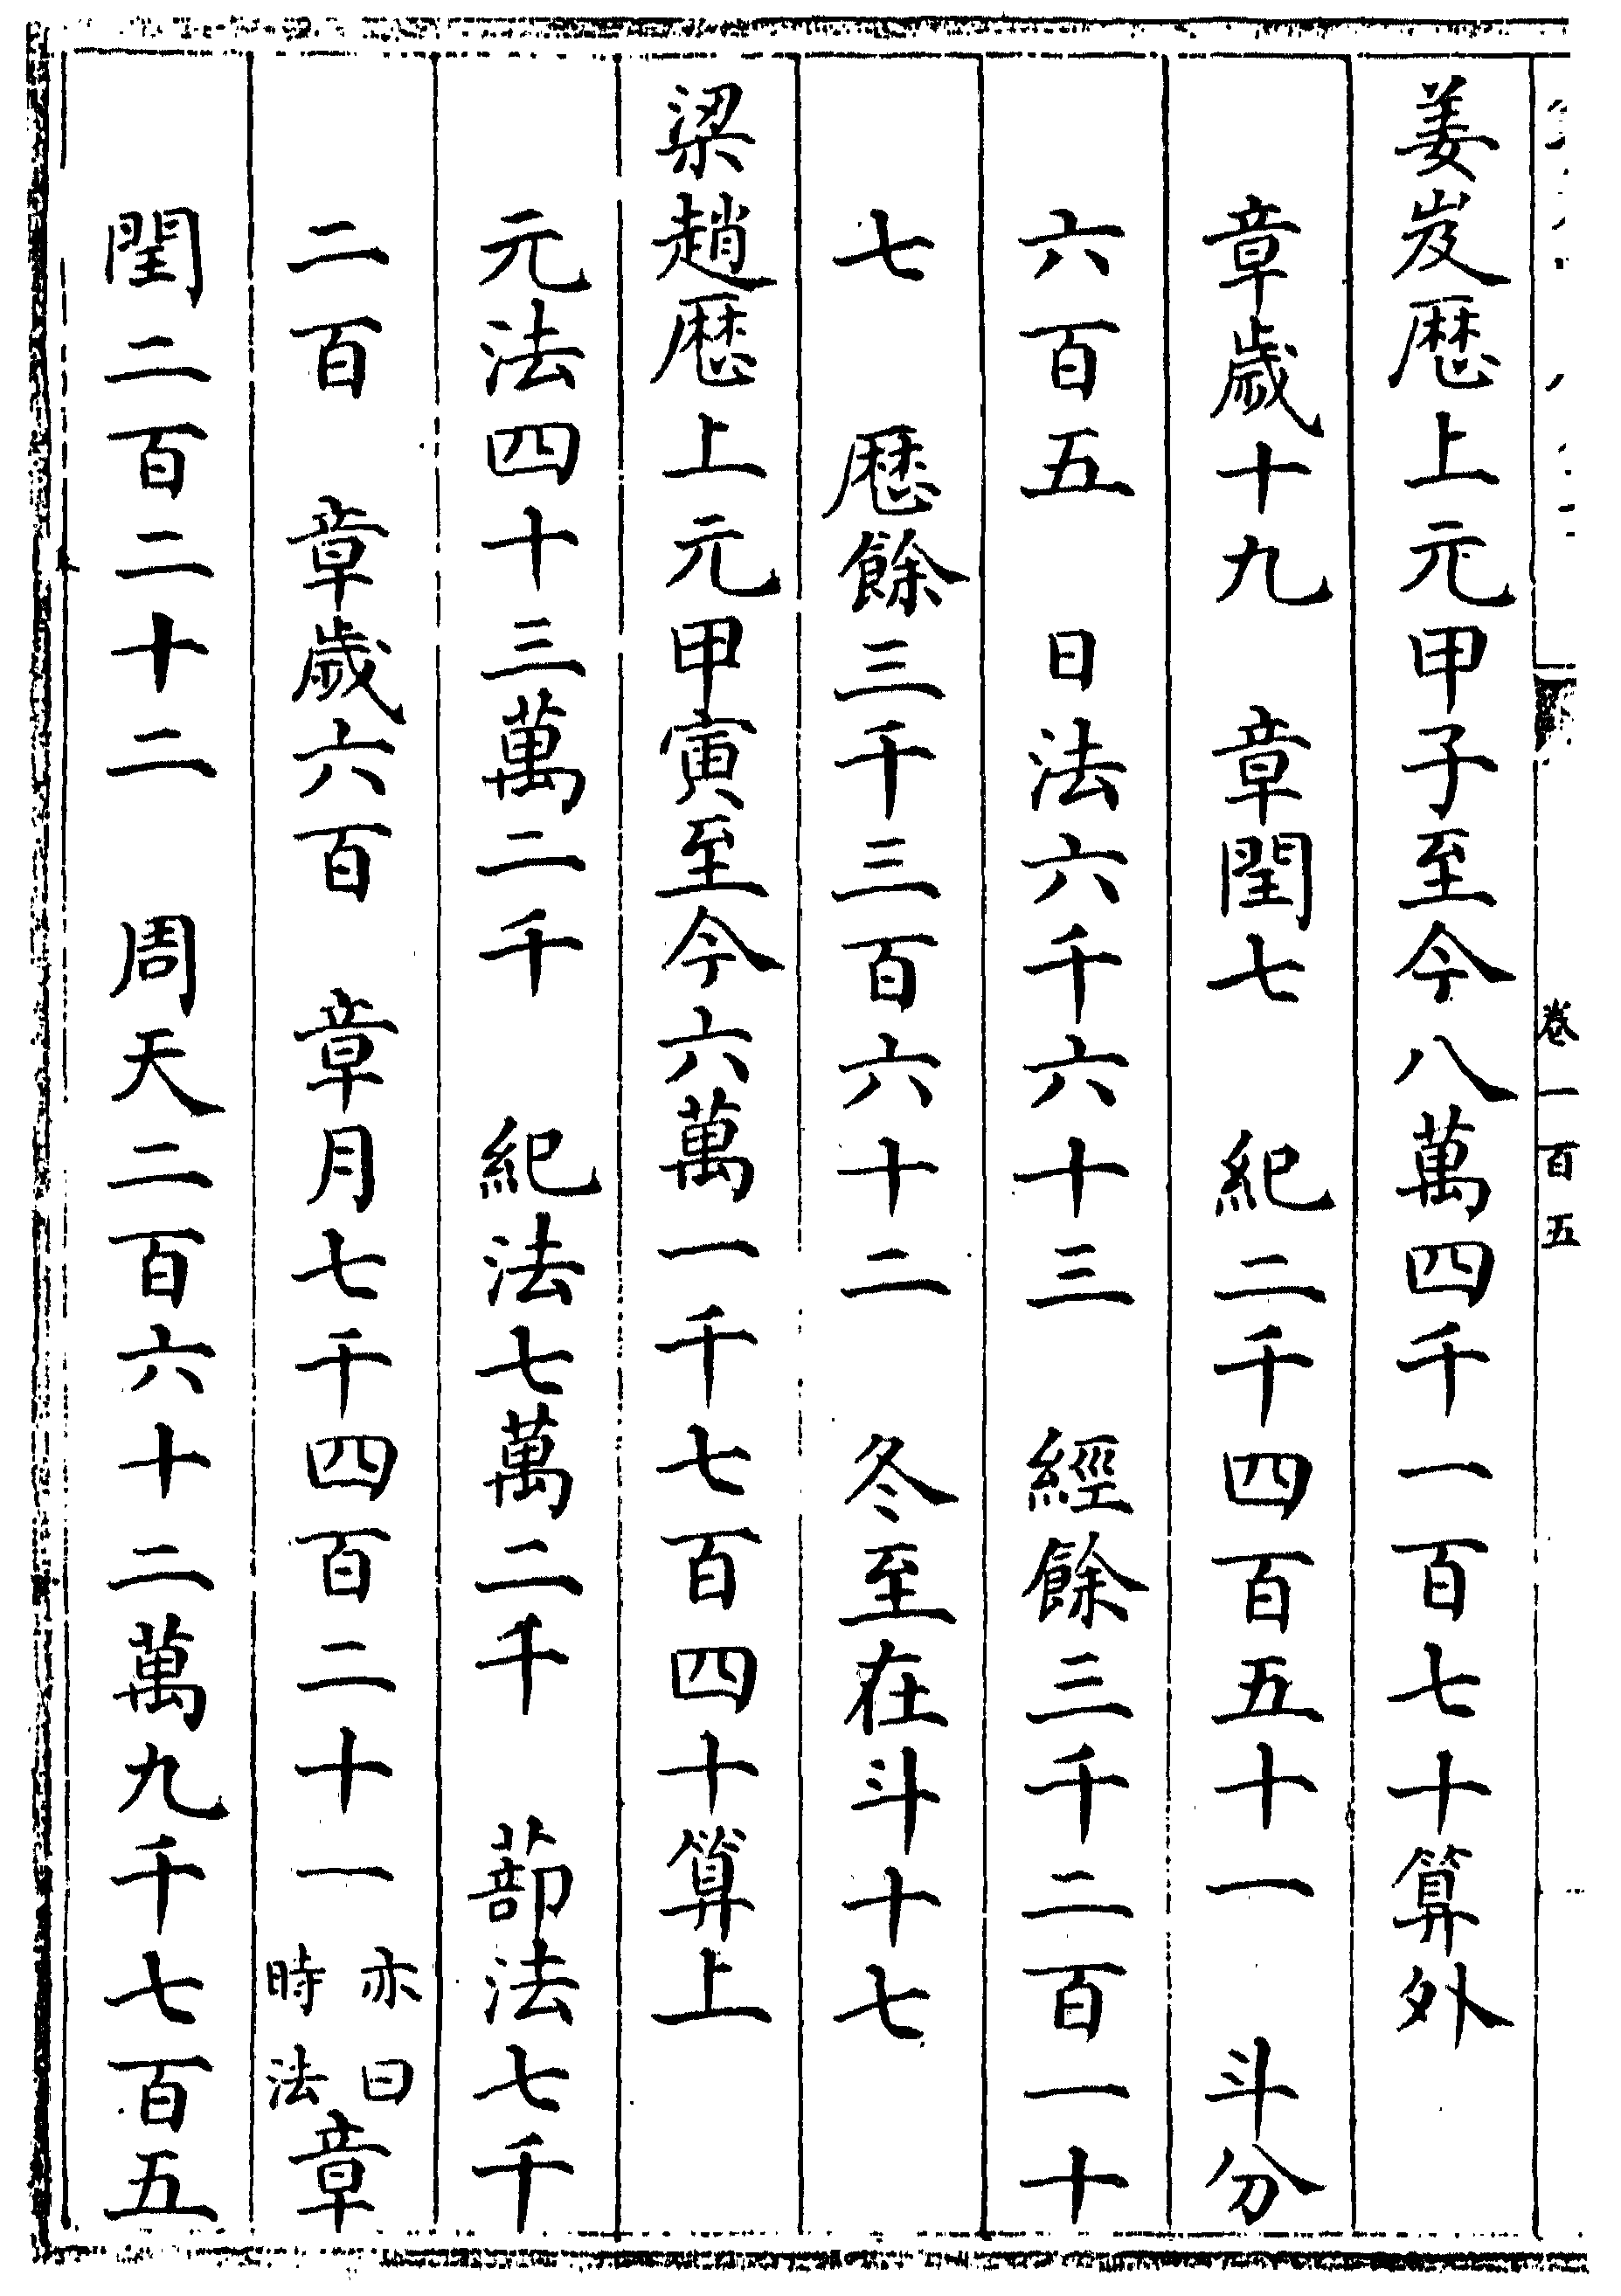 卷一百五
姜岌厯上元甲子至今八萬四千一百七十算外
章歲十九　章閏七　紀二千四百五十一　斗分
六百五　日法六千六十三　經餘三千二百一十
七　厯餘三千三百六十二　冬至在斗十七
梁趙厯上元甲寅至今六萬一千七百四十算上
元法四十三萬二千　紀法七萬二千　蔀法七千
二百　章歲六百　章月七千四百二十一亦曰時法章
閏二百二十二　周天二百六十二萬九千七百五